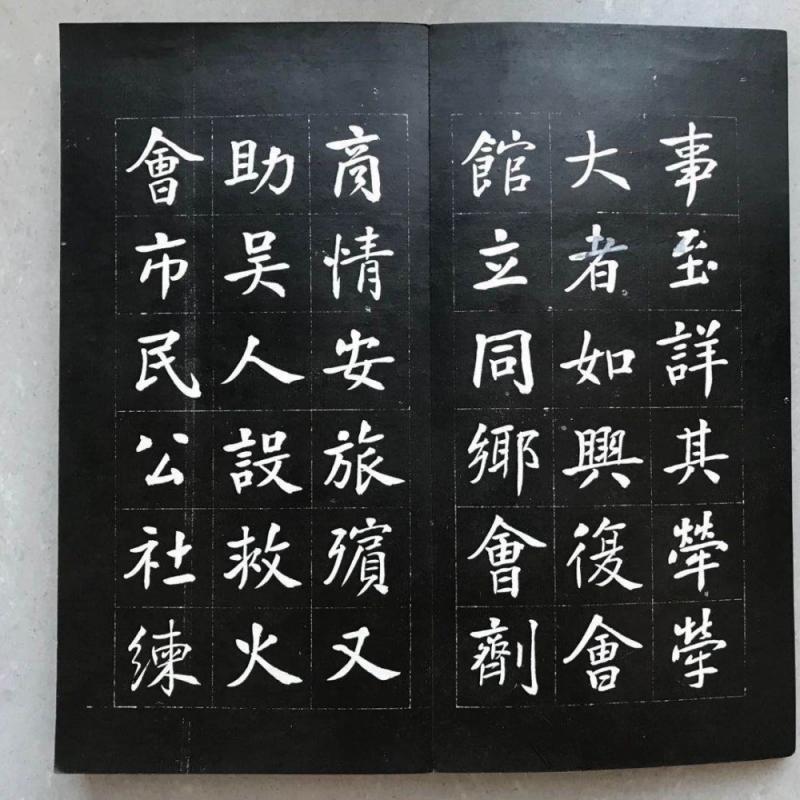 事至詳其犖犖
大者如興復會
館立同鄉會劑
商情安旅殯又
助吳人設救火
會市民公社練